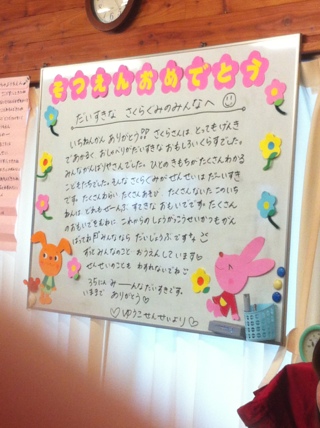 そつえんおめでとう
だいすきな さくらくみのみんなへ
いちねんかん ありがとう!! さくらさんは、とってもげんき
であかるく おしゃべりがだいすきな おもしろいくらすでした。
みんながんばりやさんでした。ひとのきもちが たくさんわかる
こどもたちでした。そんな さくらくみが せんせいは だーいすき
です。たくさんわらい たくさんあそび たくさんないた このいち
ねんは どれも ぜーんぶ すてきな おもいでです。たくさん
のおもいでをむねに これからの しょうがっこうせいかつもがん
ばってね!! みんななら だいじょうぶ です。
ずっと みんなのこと おうえんしています♡
せんせいのことも わすれないでね
35にん みーーんなだいすきです。
いままで ありがとう♡
♡ゆうこせんせいより♡